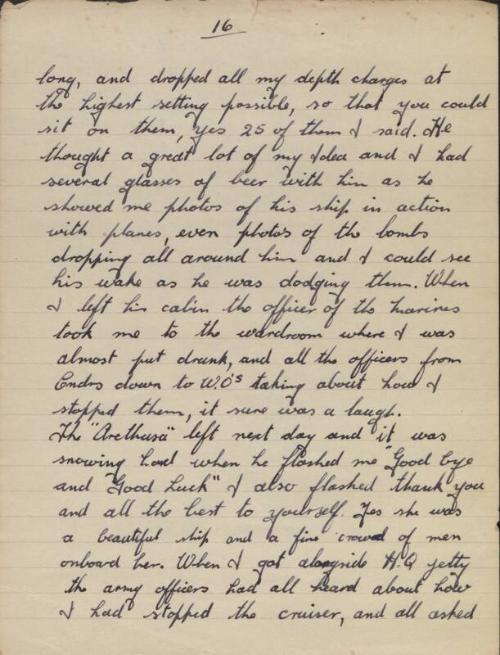 16
long, and dropped all my depth charges at
the highest setting possible, so that you could
sit on them, yes 25 of them I said. He
thought a great lot of my Idea and I had
several glasses of beer with him as he
showed me photos of his ship in action
with planes, even photos of the bombs
dropping all around him and I could see
his wake as he was dodging them. When
I left his cabin the officer of the marines
took me to the wardroom where I was
almost put drunk, and all the officers from
Cmdrs down to W.O's taking about how I
stopped them, it sure was a laugh.
The "Arethusa" left next day and it was
snowing hard when he flashed me "Good bye
and "Good Luck" I also flashed thank you
and all the best to yourself. Yes she was
a beautiful ship and a fine crowd of men
onboard her. When I got alongside H.Q jetty
the army officers had all heard about how
I had stopped the cruiser, and all asked